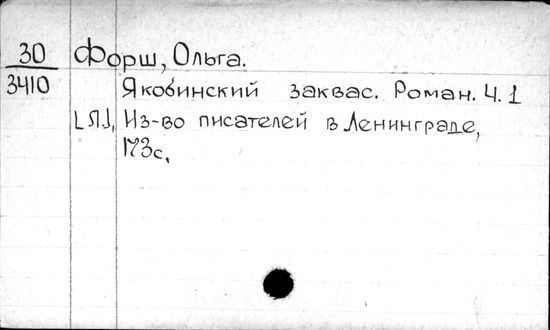 30 Форш, Ольга.
3410 Якобинский заквас. Роман. Ч. 1
[Л], Из-во писателей в Ленинграде,
173с.